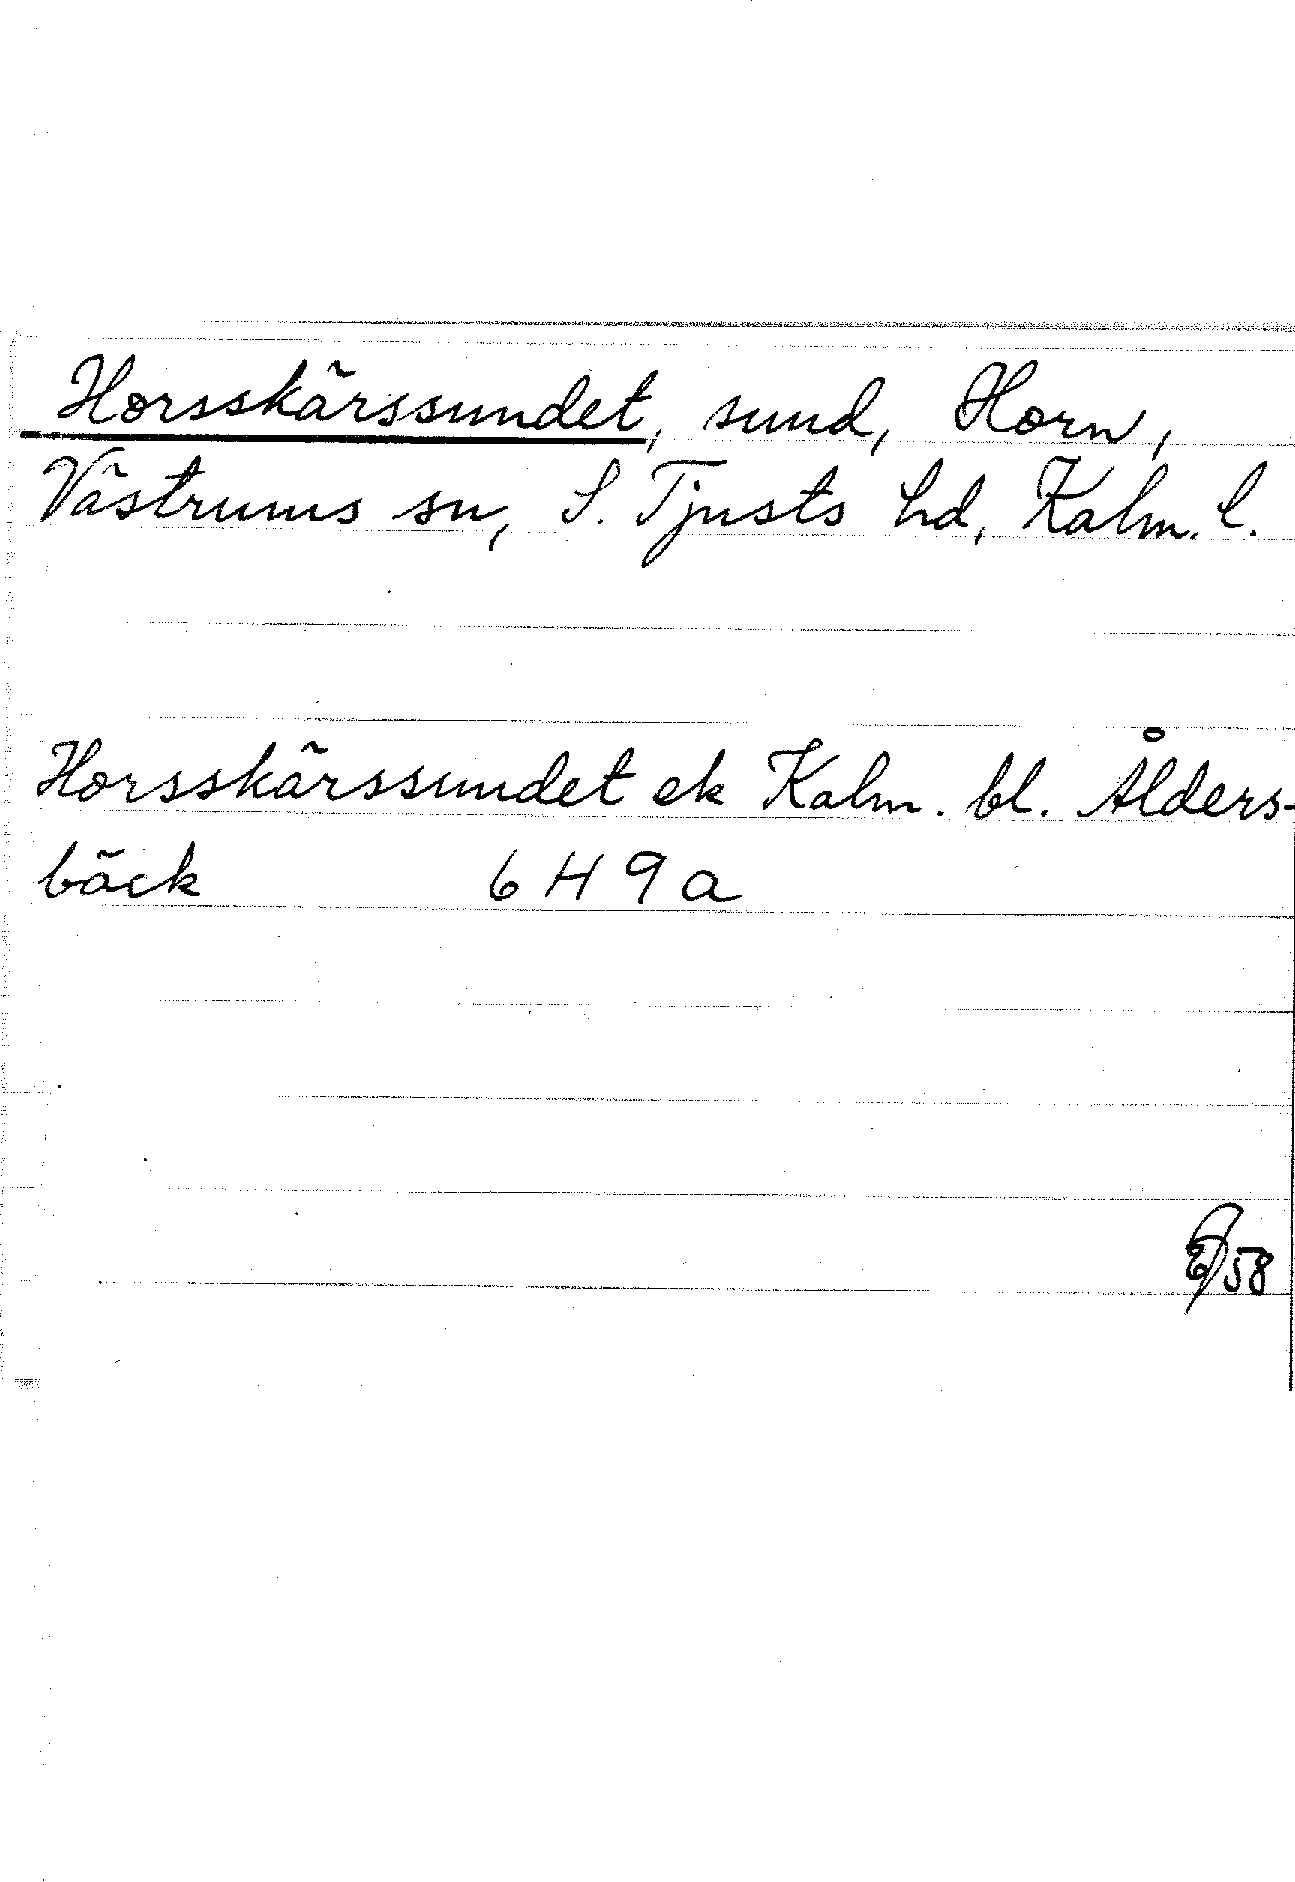 Horsskärssundet, sund, Horn,
Västrums sn, S. Tjusts hd, Kalm. l.
Horsskärssundet ek Kalm. bl. Ålders-
bäck 6 H 9 a
58